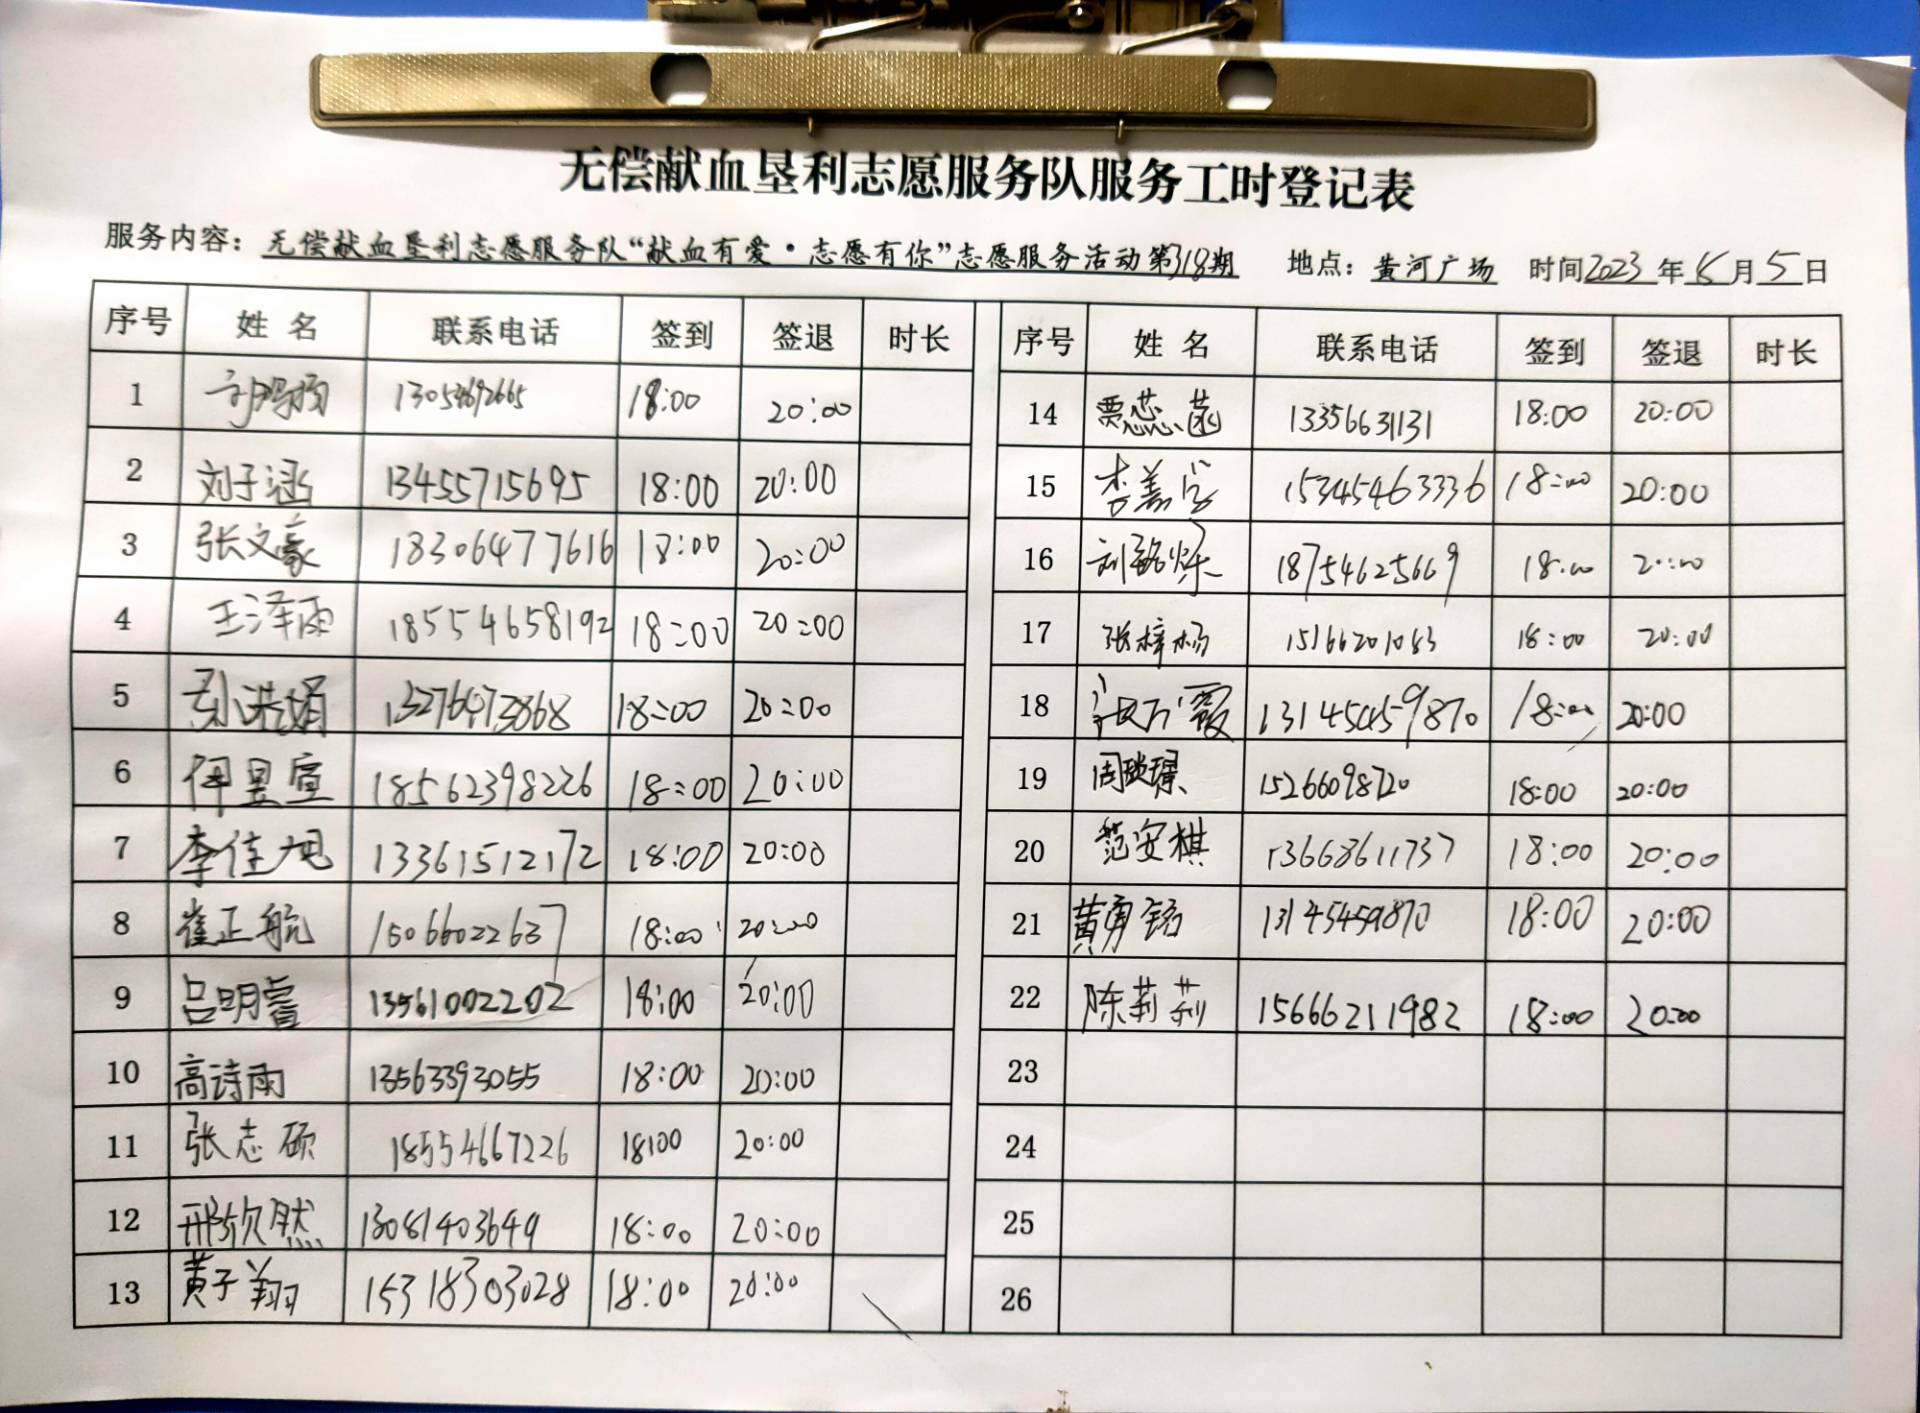 无偿献血垦利志愿服务队服务工时登记表
服务内容：无偿献血垦利志愿服务队“献血有爱·志愿有你”志愿服务活动第318期 地点：黄河广场 时间2023年5月5日
序号 姓名 联系电话 签到 签退 时长
1 13054692665 18:00 20:00
2 刘子涵 13455715695 18:00 20:00
3 张文豪 18306477616 18:00 20:00
4 王泽雨 18554658192 18:00 20:00
5 孙浩娟 13276473868 18:00 20:00
6 伊昱宣 18562398226 18:00 20:00
7 李佳旭 13361512172 18:00 20:00
8 崔正航 15066022637 18:00 20:00
9 吕明睿 13561002202 18:00 20:00
10 高诗雨 13563393055 18:00 20:00
11 张志硕 18554667226 18:00 20:00
12 邢欣然 13081403649 18:00 20:00
13 黄子翔 15318303028 18:00 20:00
序号 姓名 联系电话 签到 签退 时长
14 贾蕊菡 13356631131 18:00 20:00
15 李嘉 15345463336 18:00 20:00
16 刘铭烁 18754625669 18:00 20:00
17 张梓杨 15166201083 18:00 20:00
18 13145459870 18:00 20:00
19 周琰璟 15266098720 18:00 20:00
20 范安棋 13668611737 18:00 20:00
21 黄勇铭 13145459870 18:00 20:00
22 陈莉莉 15666211982 18:00 20:00
23
24
25
26